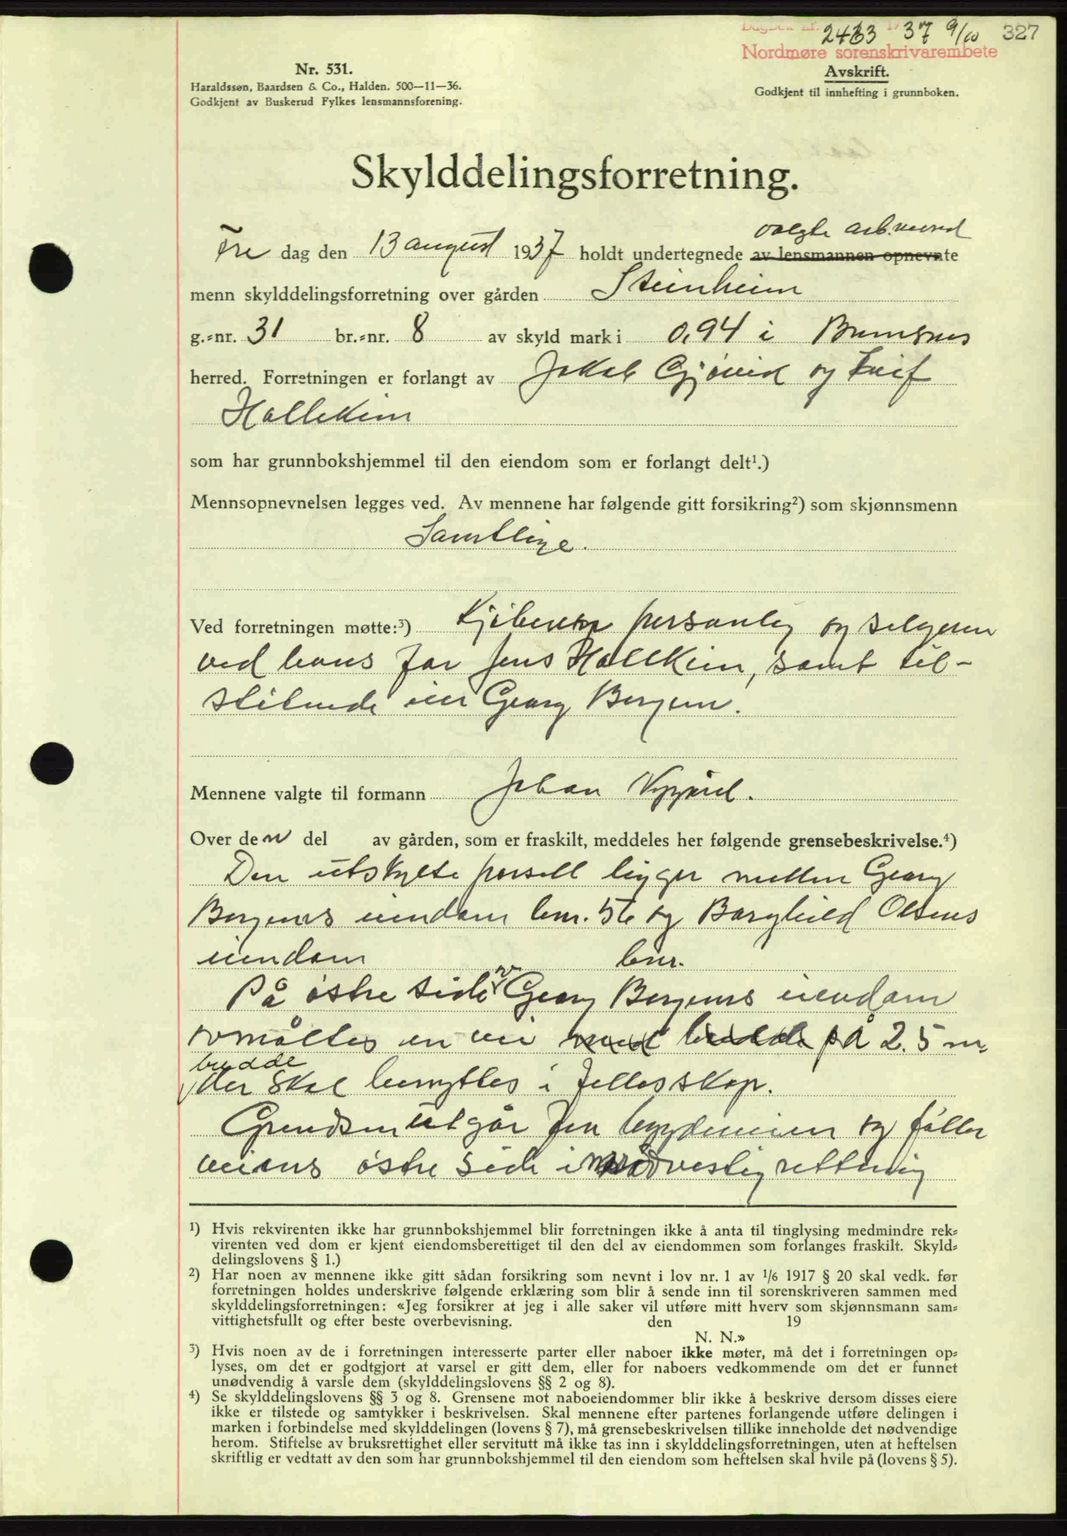 2433 1937 9/10 327
Nordmøre sorenskrivarembete
Nr. 531.
Haraldssøn, Baardsen & Co., Halden. 500—11—36.
Godkjent av Buskerud Fylkes lensmannsforening.
Avskrift.
Godkjent til innhefting i grunnboken.
Skylddelingsforretning.
valgte
Fre dag den 13 august 1937 holdt undertegnede av lensmannen opnevnte
menn skylddelingsforretning over gården Steinheim
g.=nr. 31 br.=nr. 8 av skyld mark i 0,94 i Bremsnes
herred. Forretningen er forlangt av Jakob Gjøvik og Leif
Halleknin
som har grunnbokshjemmel til den eiendom som er forlangt delt¹.)
Mennsopnevnelsen legges ved. Av mennene har følgende gitt forsikring²) som skjønnsmenn
Samtlige.
Ved forretningen møtte:³) Kjøberen personlig og selgeren
ved hans far Jens , samt til-
støtende eier Georg Bergem.
Mennene valgte til formann Johan
Over den del av gården, som er fraskilt, meddeles her følgende grensebeskrivelse.⁴)
Den utskylte parsell ligger mellem Georg
Bergems eiendom bnr. 56 og Borghild Olsens
eiendom bnr.
På østre side v Georg Bergems eiendom
en vei med bredde på 2.5 m.
bredde
der skal benyttes i fellesskap.
Grendsen utgår fra bygdeveien og føller
veiens østre side i nordvestlig rettning
¹) Hvis rekvirenten ikke har grunnbokshjemmel blir forretningen ikke å anta til tinglysing medmindre rek=
virenten ved dom er kjent eiendomsberettiget til den del av eiendommen som forlanges fraskilt. Skyld=
delingslovens § 1.)
²) Har noen av mennene ikke gitt sådan forsikring som nevnt i lov nr. 1 av ¹/₆ 1917 § 20 skal vedk. før
forretningen holdes underskrive følgende erklæring som blir å sende inn til sorenskriveren sammen med
skylddelingsforretningen: «Jeg forsikrer at jeg i alle saker vil utføre mitt hverv som skjønnsmann sam=
vittighetsfullt og efter beste overbevisning. den 19
N. N.»
³) Hvis noen av de i forretningen interesserte parter eller naboer ikke møter, må det i forretningen op=
lyses, om det er godtgjort at varsel er gitt dem, eller for naboers vedkommende om det er funnet
unødvendig å varsle dem (skylddelingslovens §§ 2 og 8).
⁴) Se skylddelingslovens §§ 3 og 8. Grensene mot naboeiendommer blir ikke å beskrive dersom disses eiere
ikke er tilstede og samtykker i beskrivelsen. Skal mennene efter partenes forlangende utføre delingen i
marken i forbindelse med skylddelingen (lovens § 7), må grensebeskrivelsen tillike inneholde det nødvendige
herom. Stiftelse av bruksrettighet eller servitutt må ikke tas inn i skylddelingsforretningen, uten at heftelsen
skriftlig er vedtatt av den som har grunnbokshjemmel til den eiendom som heftelsen skal hvile på (lovens § 5).